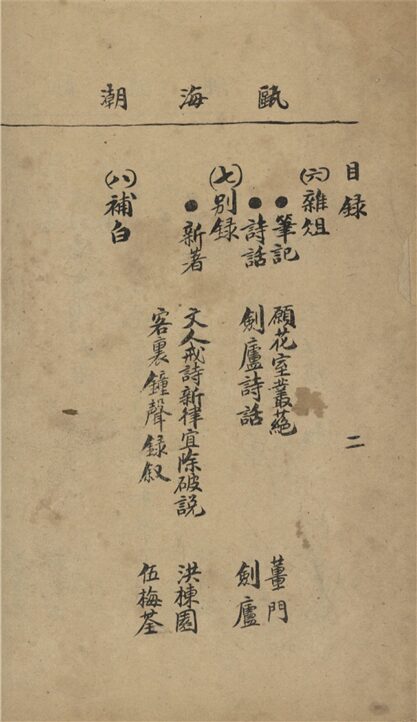 甌海潮
目録
二
㈥雜俎
●筆記 願花室叢蕝 董門
●詩話 劍廬詩話 劍廬
㈦別録
●新著 文人戒詩新律宜除破説 洪棟園
客裏鐘聲録叙 伍梅荃
㈧補白